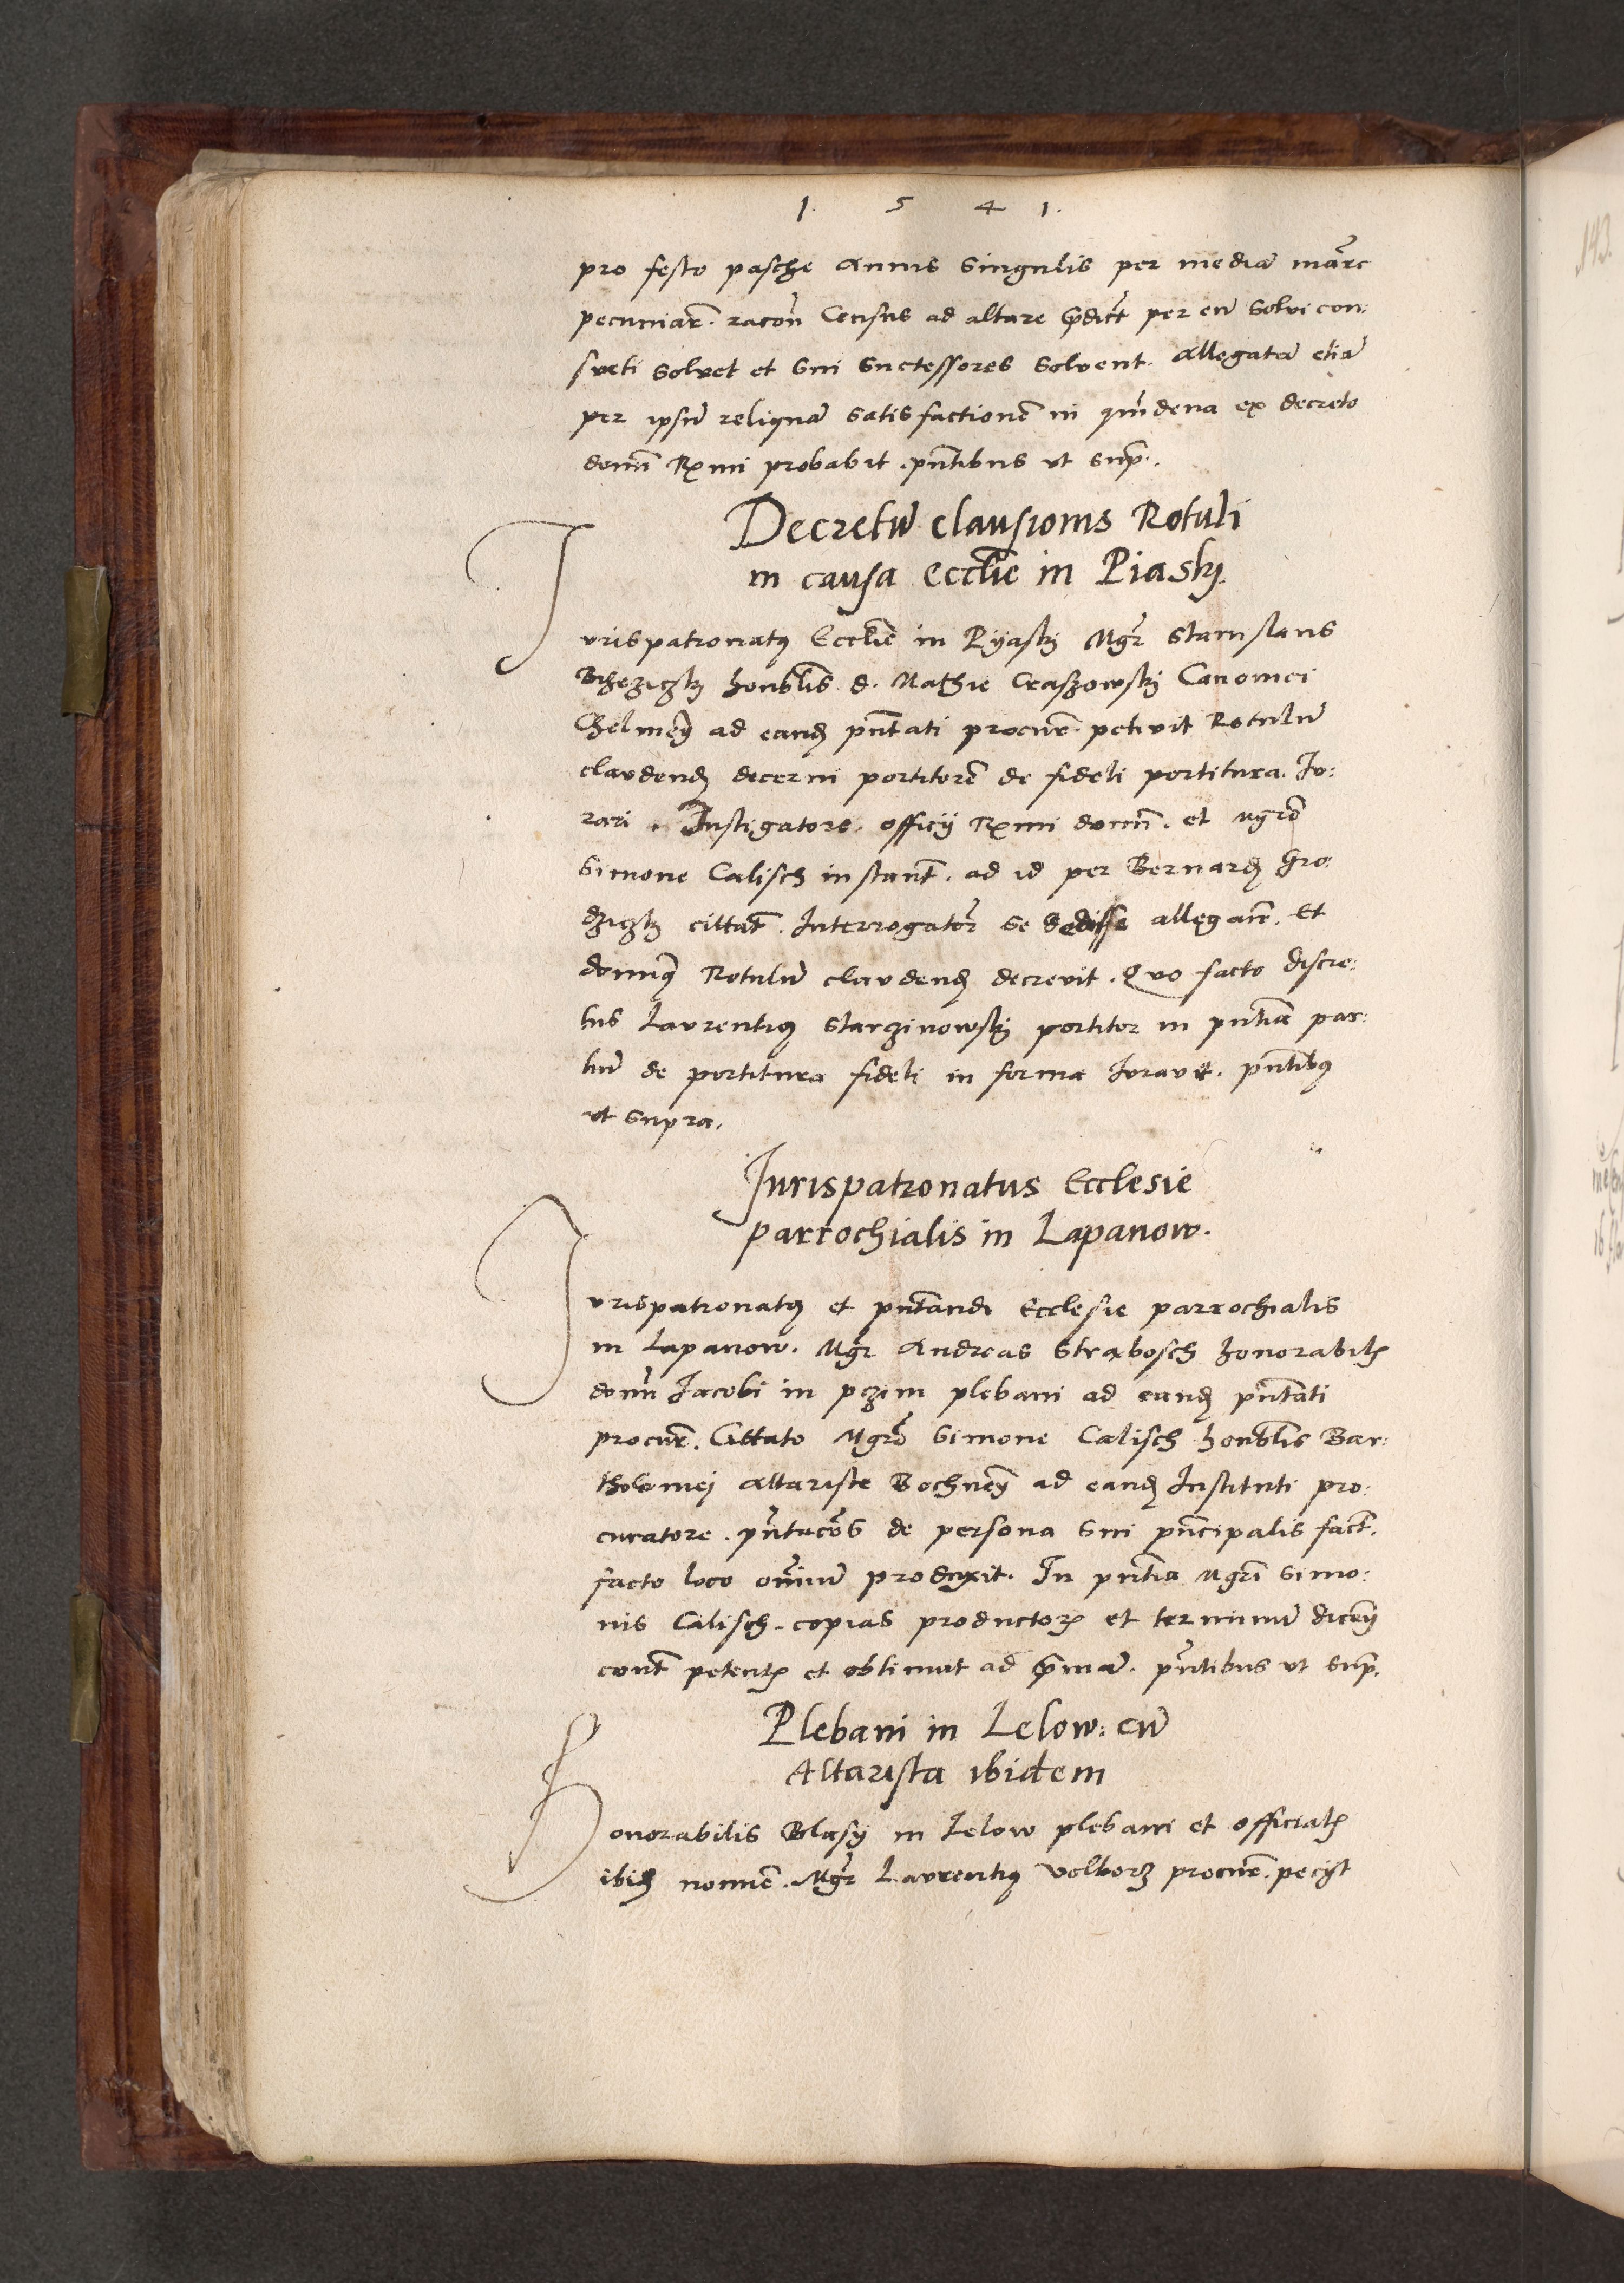 1. 5 4 1.
pro festo pasche Annis singulis per mediã marc
pecuniar. racoñ Census ad altare p̃dict per eũ solvi con:
sueti solvet et sui successores solvent. Allegatã etiã
per ipsũ reliquã satisfactionẽ in quĩdena ex decreto
domĩ Rmi probabit. pñtibus ut sup.
Decretũ clausionis Rotuli
in causa eccl̃ie in Piasky.
Iurispatronatꝰ Eccl̃ie in Pyasky Mgr̃ Stanislaus
honb̃lis d. Mathie Craszowsky Canonici
Chelmeñ ad eand pñtati procur. petivit Rotulũ
claudend decerni portitorẽ de fideli portitura. Iu:
rari. Instigatore. officij Rmi domĩ. et Mgrõ
Simone Calisch instant. ad id per Bernard Gro:
citat. Interrogator se dedisse allegañ. Et
dominꝰ Rotulũ claudend decrevit. Quo facto discre:
tus Laurentiꝰ Starzinowsky portitor in pñtia par:
tiũ de portitura fideli in forma Iuravit. pñtibꝰ
ut supra.
Jurispatronatus Ecclesie
parrochialis in Lapanow.
Iurispatronatꝰ et pñtandi Ecclesie parrochialis
in Lapanow. Mgr̃ Andreas Strabosch honorabil
domĩ Jacobi in pzim plebani ad eand pñtati
procur. Cittato Mgrõ Simone Calisch honb̃lis Bar:
tholomej altariste Bochneñ ad eand Instituti pro:
curatore. pñtacõs de persona sui pñcipalis fact.
facto loco oĩnium produxit. In pñtia Mgrĩ Simo:
nis Calisch. copias productor et terminũ diceñ
cont petent et obtinuit ad p̃mã. pñtibus ut sup.
Plebani in Lelow: cũ
Altarista ibidem
Honorabilis Blasij in Lelow plebani et official
ibid nomie. Mgr̃ Laurentiꝰ Volborz procur. pecijt